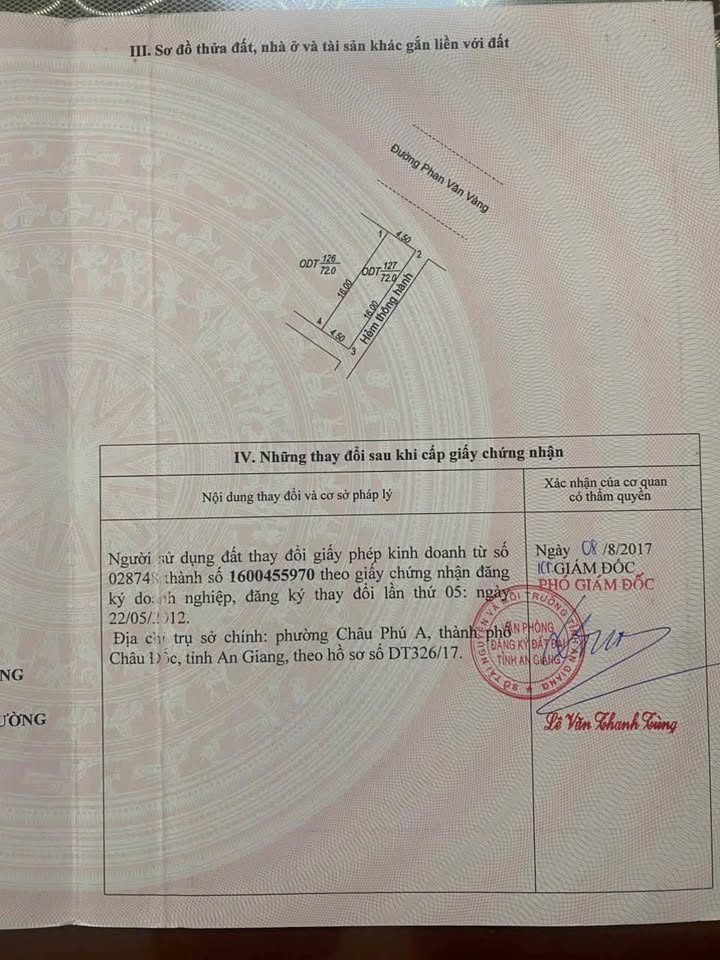 III. Sơ đồ thửa đất, nhà ở và tài sản khác gắn liền với đất
Đường Phan Văn Vàng
1
4.50
2
ODT 126
72.0
ODT 127
72.0
16.00
16.00
Hẻm thông hành
4
4.50
3
IV. Những thay đổi sau khi cấp giấy chứng nhận
Nội dung thay đổi và cơ sở pháp lý
Xác nhận của cơ quan
có thẩm quyền
Người sử dụng đất thay đổi giấy phép kinh doanh từ số
028748 thành số 1600455970 theo giấy chứng nhận đăng
ký doanh nghiệp, đăng ký thay đổi lần thứ 05: ngày
22/05/2012.
Địa chỉ trụ sở chính: phường Châu Phú A, thành phố
Châu Đốc, tỉnh An Giang, theo hồ sơ số DT326/17.
Ngày 08/8/2017
KT.GIÁM ĐỐC
PHÓ GIÁM ĐỐC
SỞ TÀI NGUYÊN VÀ MÔI TRƯỜNG TỈNH AN GIANG
VĂN PHÒNG
ĐĂNG KÝ ĐẤT ĐAI
TỈNH AN GIANG
Lê Văn Thanh Tùng
NG
ƯỜNG